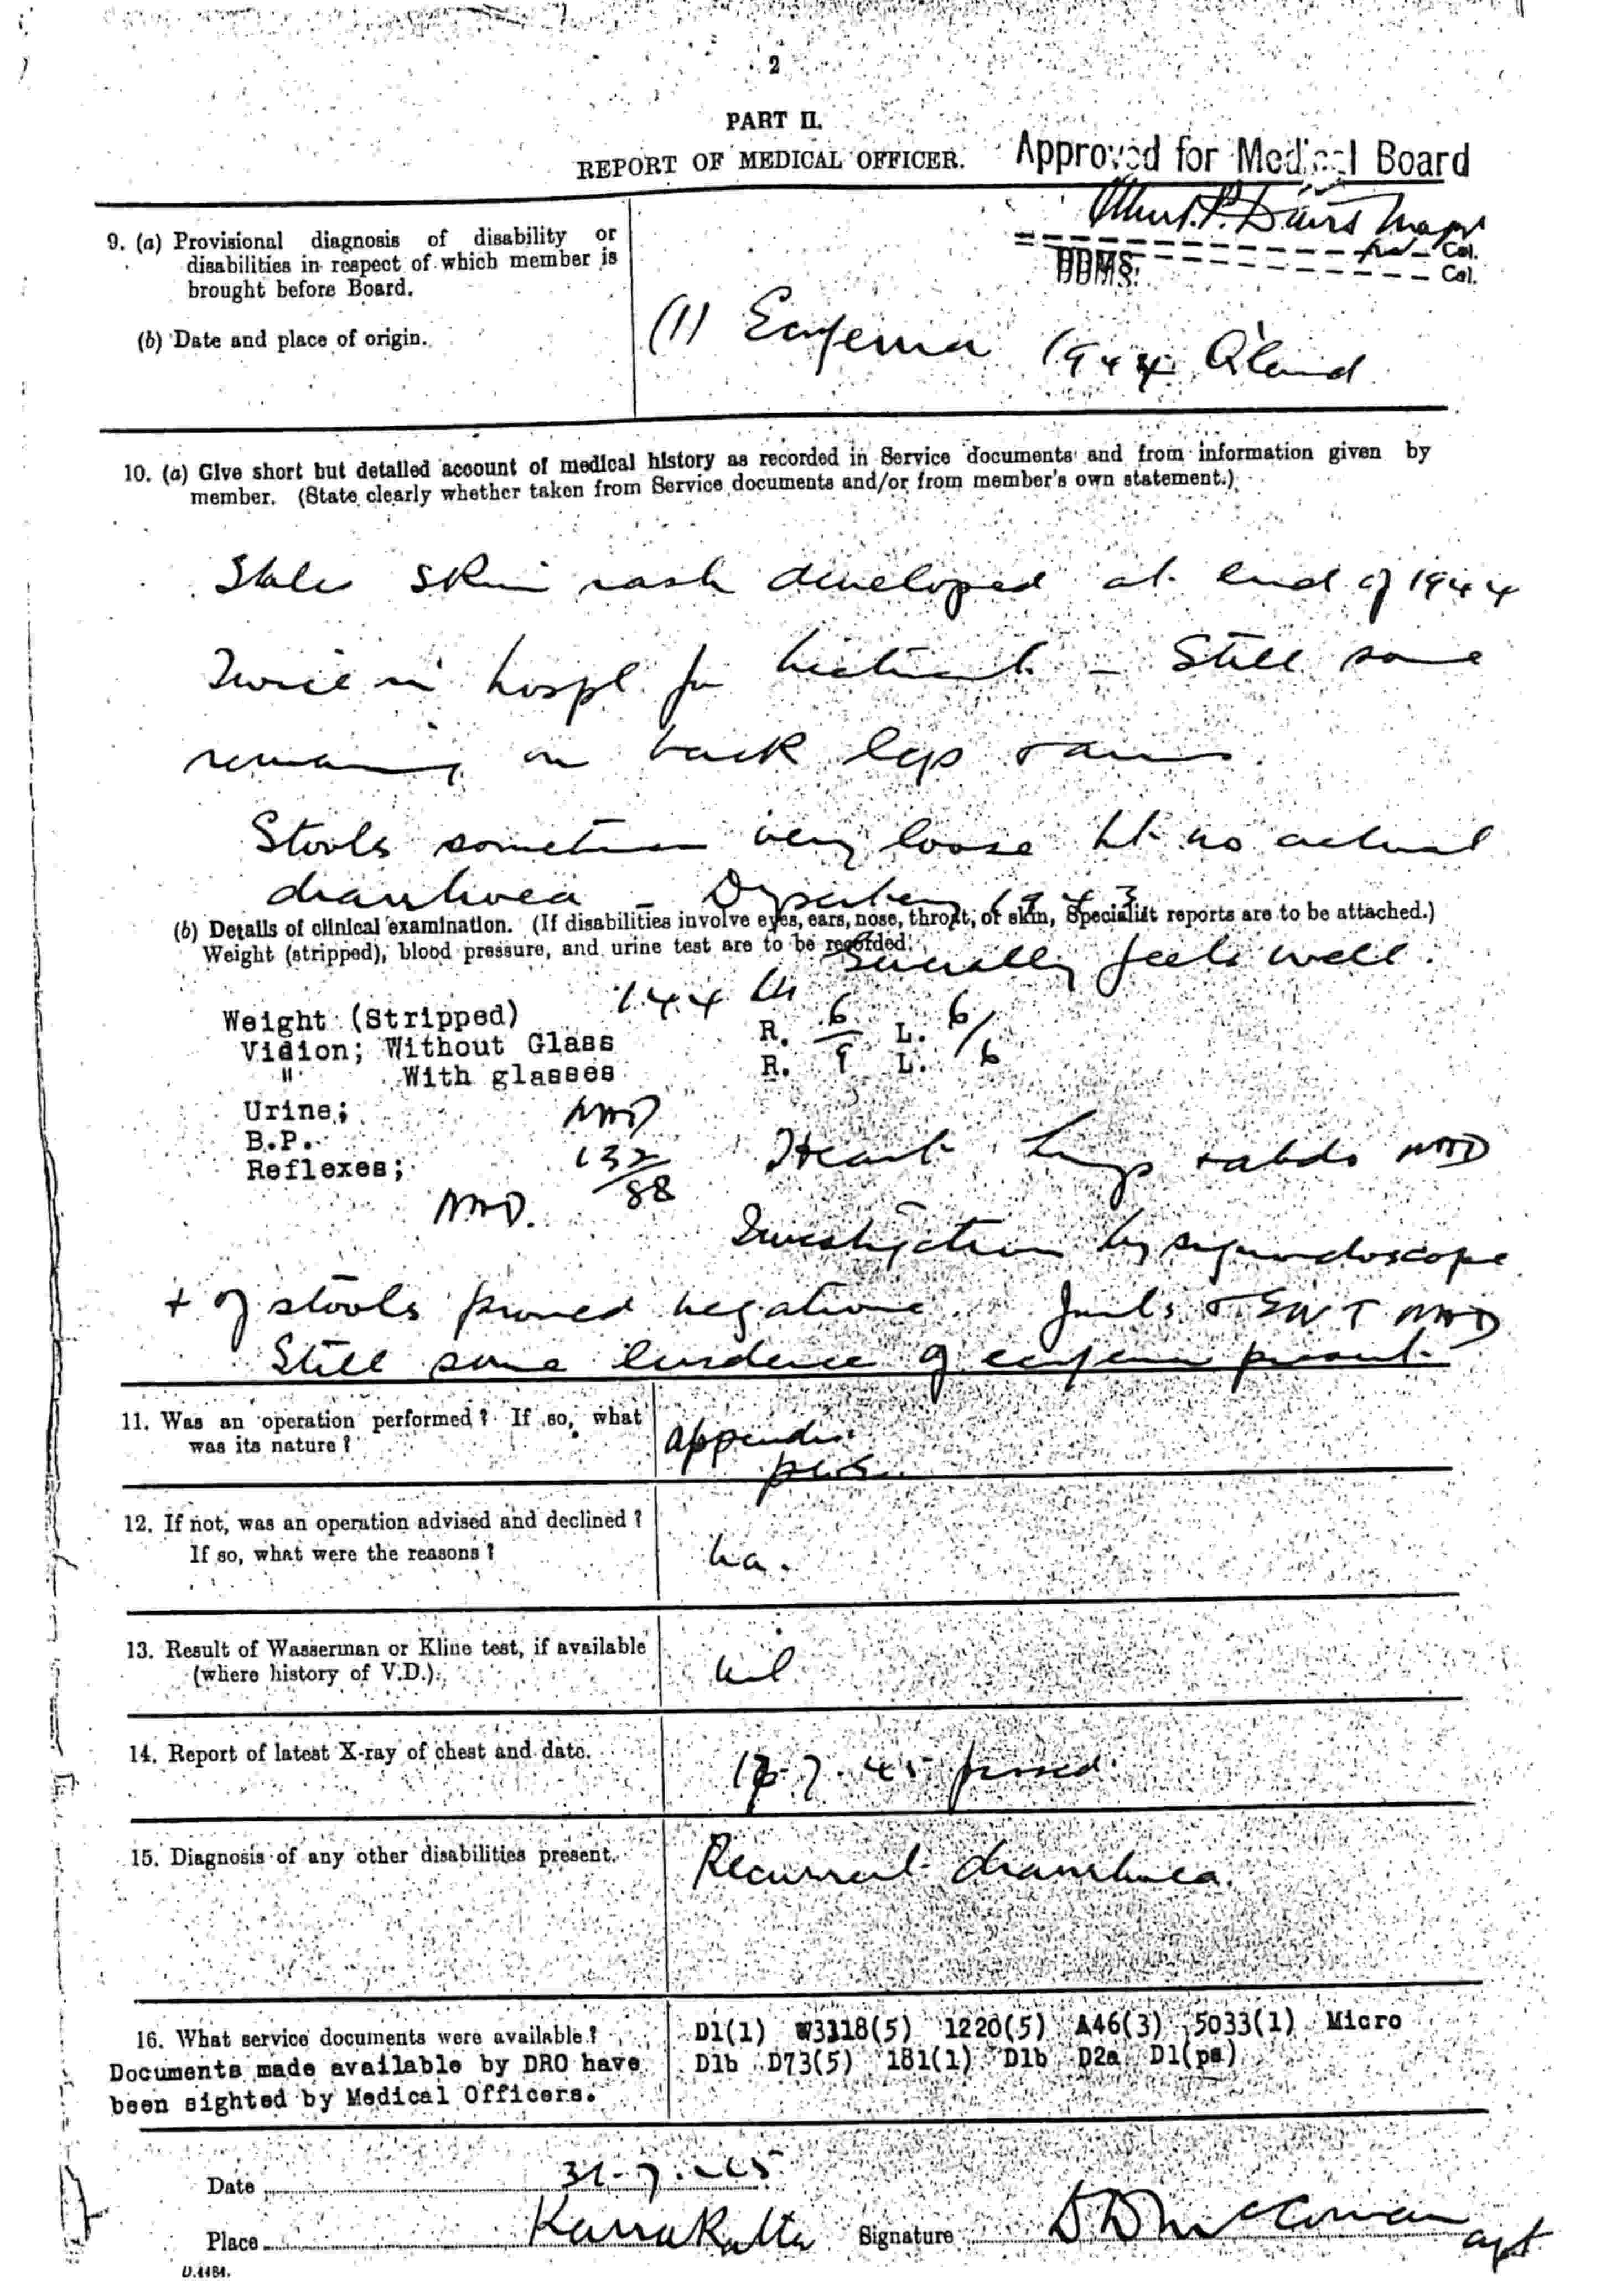 2
PART II.
REPORT OF MEDICAL OFFICER.
Approved for Medical Board
Davis Major
for Col.
DDMS.
Col.
9. (a) Provisional diagnosis of disability or
disabilities in respect of which member is
brought before Board.
(b) Date and place of origin.
(1) Eczema 1944 Q'land
10. (a) Give short but detailed account of medical history as recorded in Service documents and from information given by
member. (State clearly whether taken from Service documents and/or from member's own statement.)
States skin rash developed at end of 1944
Twice in hospl. for treatment - Still some
remaining on back legs + arms.
Stools sometimes very loose but no actual
diarrhoea - Dysentery 1943
(b) Details of clinical examination. (If disabilities involve eyes, ears, nose, throat, or skin, Specialist reports are to be attached.)
Weight (stripped), blood pressure, and urine test are to be recorded.
Generally feels well.
Weight (Stripped) 144 lbs
Vision; Without Glass R. 6/9 L. 6/6
" With glasses R. L.
Urine; NAD
B.P. 132/88
Reflexes; NAD.
Heart Lungs + abdo NAD
Investigation by sigmoidoscope
+ of stools proved negative. Joints + ENT NAD
Still some evidence of eczema present.
11. Was an operation performed? If so, what
was its nature?
appendix
12. If not, was an operation advised and declined?
If so, what were the reasons?
na.
13. Result of Wasserman or Kline test, if available
(where history of V.D.).
nil
14. Report of latest X-ray of chest and date.
7.45 passed
15. Diagnosis of any other disabilities present.
Recurrent diarrhoea.
16. What service documents were available?
Documents made available by DRO have
been sighted by Medical Officers.
D1(1) W3118(5) 1220(5) A46(3) 5033(1) Micro
D1b D73(5) 181(1) D1b D2a D1(pa)
Date 31-7-45
Place Karrakatta Signature D D McCowan Capt
D.1184.